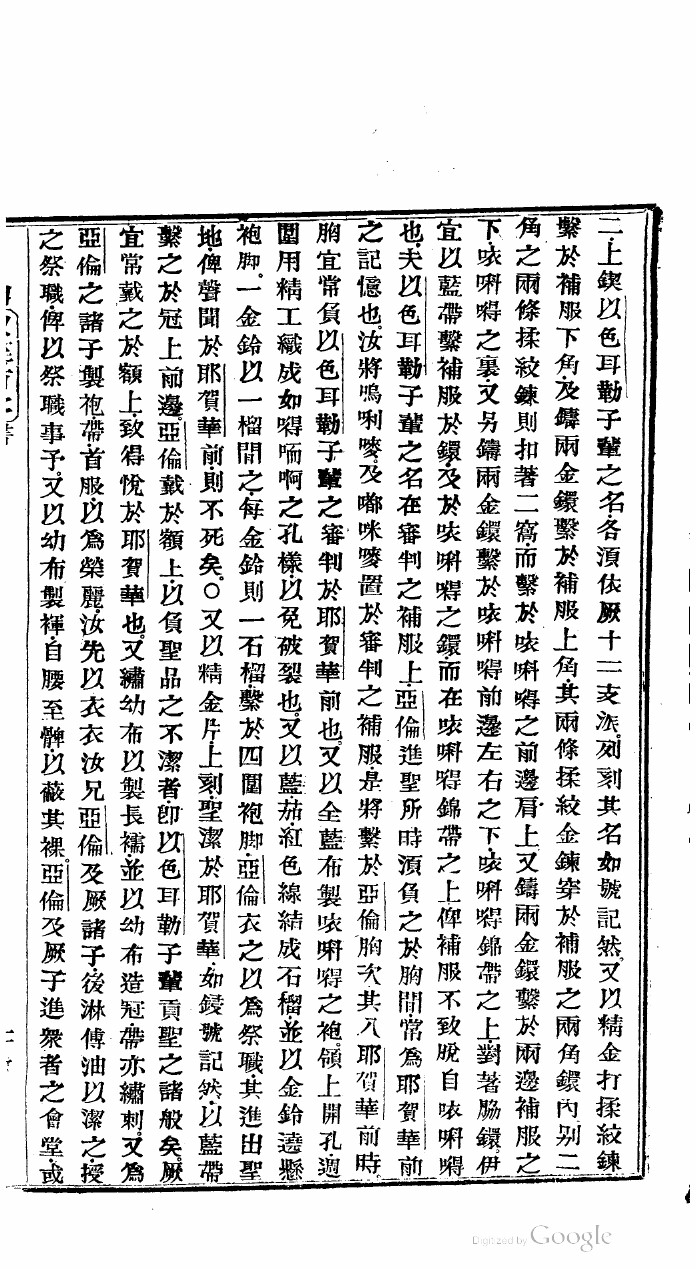 二上鍥以色耳勒子輩之名各湏依厥十二支派列刻其名如號記然又以精金打揉絞鍊
繫於補服下角及鑄兩金鐶繫於補服上角其兩條揉絞金鍊穿於補服之兩角鐶內别二
角之兩條揉絞鍊則扣著二窩而繫於㕹唎嘚之前邊肩上又鑄兩金鐶繫於兩邊補服之
下㕹唎嘚之裏又另鑄兩金鐶繫於㕹唎嘚前邊左右之下㕹唎嘚錦帶之上對著脇鐶伊
宜以藍帶繫補服於鐶及於㕹唎嘚之鐶而在㕹唎嘚錦帶之上俾補服不致脫自㕹唎嘚
也夫以色耳勒子輩之名在審判之補服上亞倫進聖所時湏負之於胸間常為耶賀華前
之記憶也汝將嗚唎嘜及嘟咪嘜置於審判之補服是將繫於亞倫胸次其入耶賀華前時
胸宜常負以色耳勒子輩之審判於耶賀華前也又以全藍布製㕹唎嘚之袍領上開孔週
圍用精工織成如嘚喃啊之孔樣以免破裂也又以藍茄紅色線結成石榴並以金鈴遶懸
袍脚一金鈴以一榴間之每金鈴則一石榴繫於四圍袍脚亞倫衣之以為祭職其進出聖
地俾聲聞於耶賀華前則不死矣○又以精金片上刻聖潔於耶賀華如鍐號記然以藍帶
繫之於冠上前邊亞倫戴於額上以負聖品之不潔者卽以色耳勒子輩貢聖之諸般矣厥
宜常戴之於額上致得悅於耶賀華也又繡幼布以製長襦並以幼布造冠帶亦繡刺又為
亞倫之諸子製袍帶首服以為榮麗汝先以衣衣汝兄亞倫及厥諸子後淋傅油以潔之授
之祭職俾以祭職事予又以幼布製褌自腰至髀以蔽其裸亞倫及厥子進衆者之會堂或
Digitized by Google